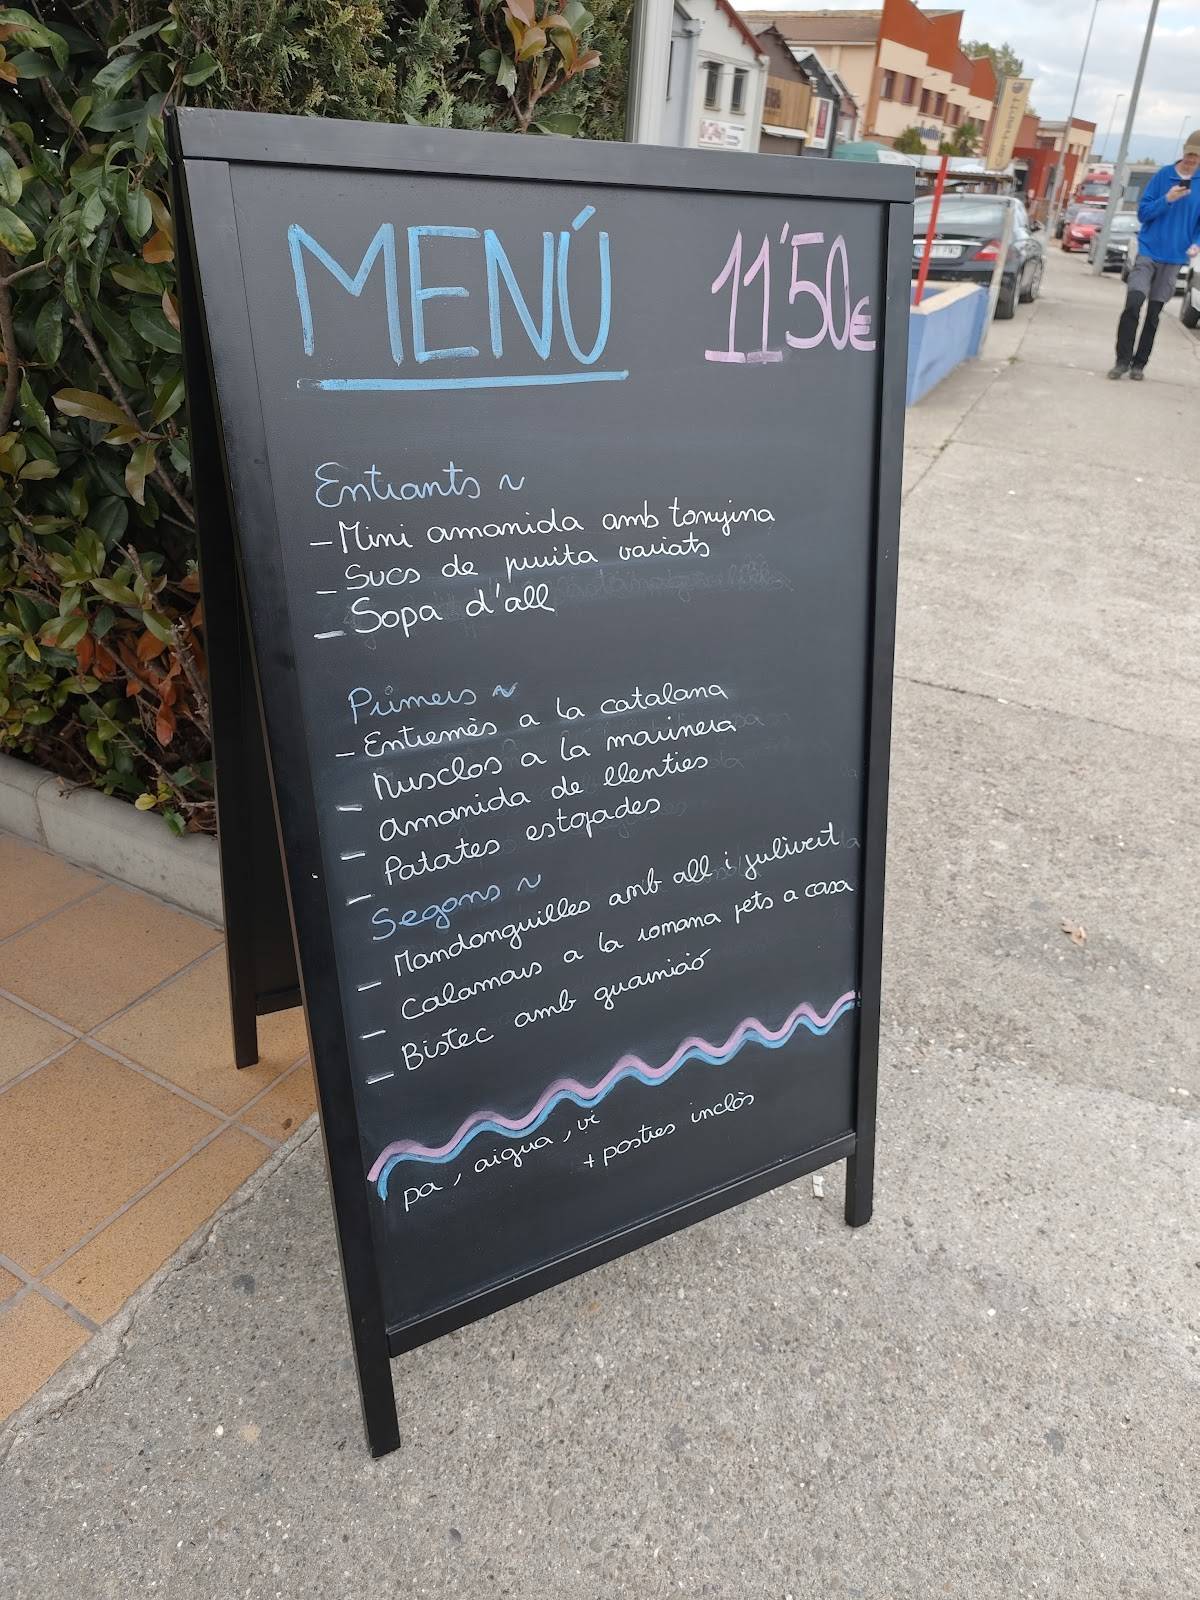 MENÚ 11'50€
Entrants ~
- Mini amanida amb tonyina
- Sucs de fruita variats
- Sopa d'all
Primers ~
- Entremès a la catalana
- Musclos a la marinera
- Amanida de llenties
- Patates estofades
Segons ~
- Mandonguilles amb all i julivert
- Calamars a la romana fets a casa
- Bistec amb guarnició
pa, aigua, vi
+ postres inclòs